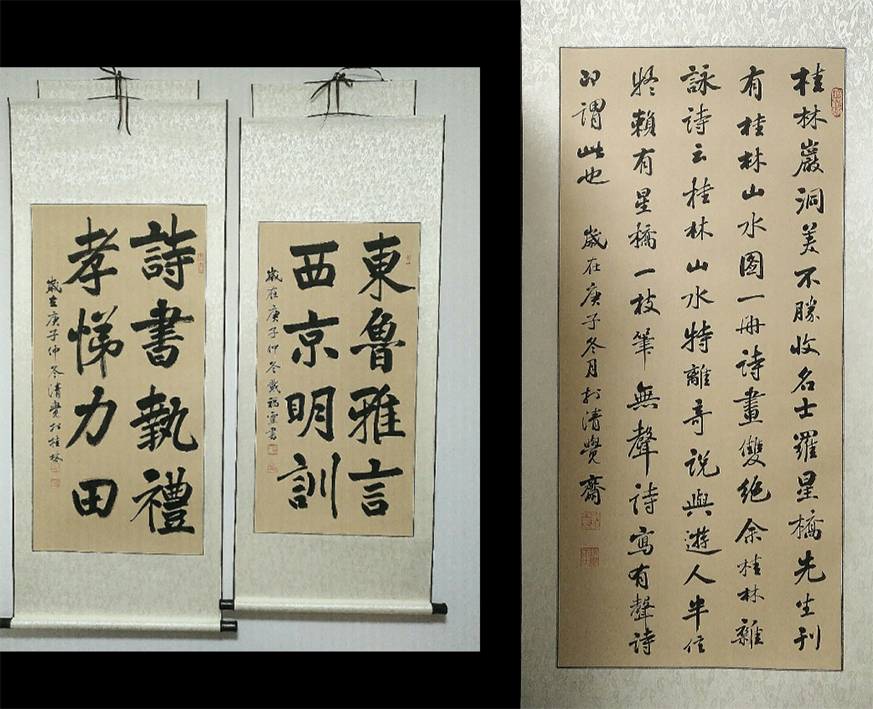 東魯雅言
西京明訓
歲在庚子仲冬戴福雲書
詩書執禮
孝悌力田
歲在庚子仲冬清覺於桂林
桂林巖洞美不勝收名士羅星橋先生刊
有桂林山水图一冊詩畫雙绝余桂林雜
詠詩云桂林山水特離奇説與遊人半信
疑賴有星橋一枝筆無聲詩寫有聲詩
即謂此也 歲在庚子冬月於清覺齋